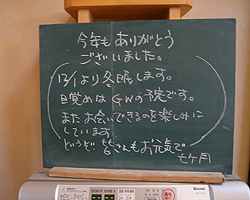 今年もありがとう
ございました。
12/1より冬眠します。
目覚めはGWの予定です。
またお会いできるのを楽しみに
しています
どうぞ皆さんもお元気で
七ヶ月